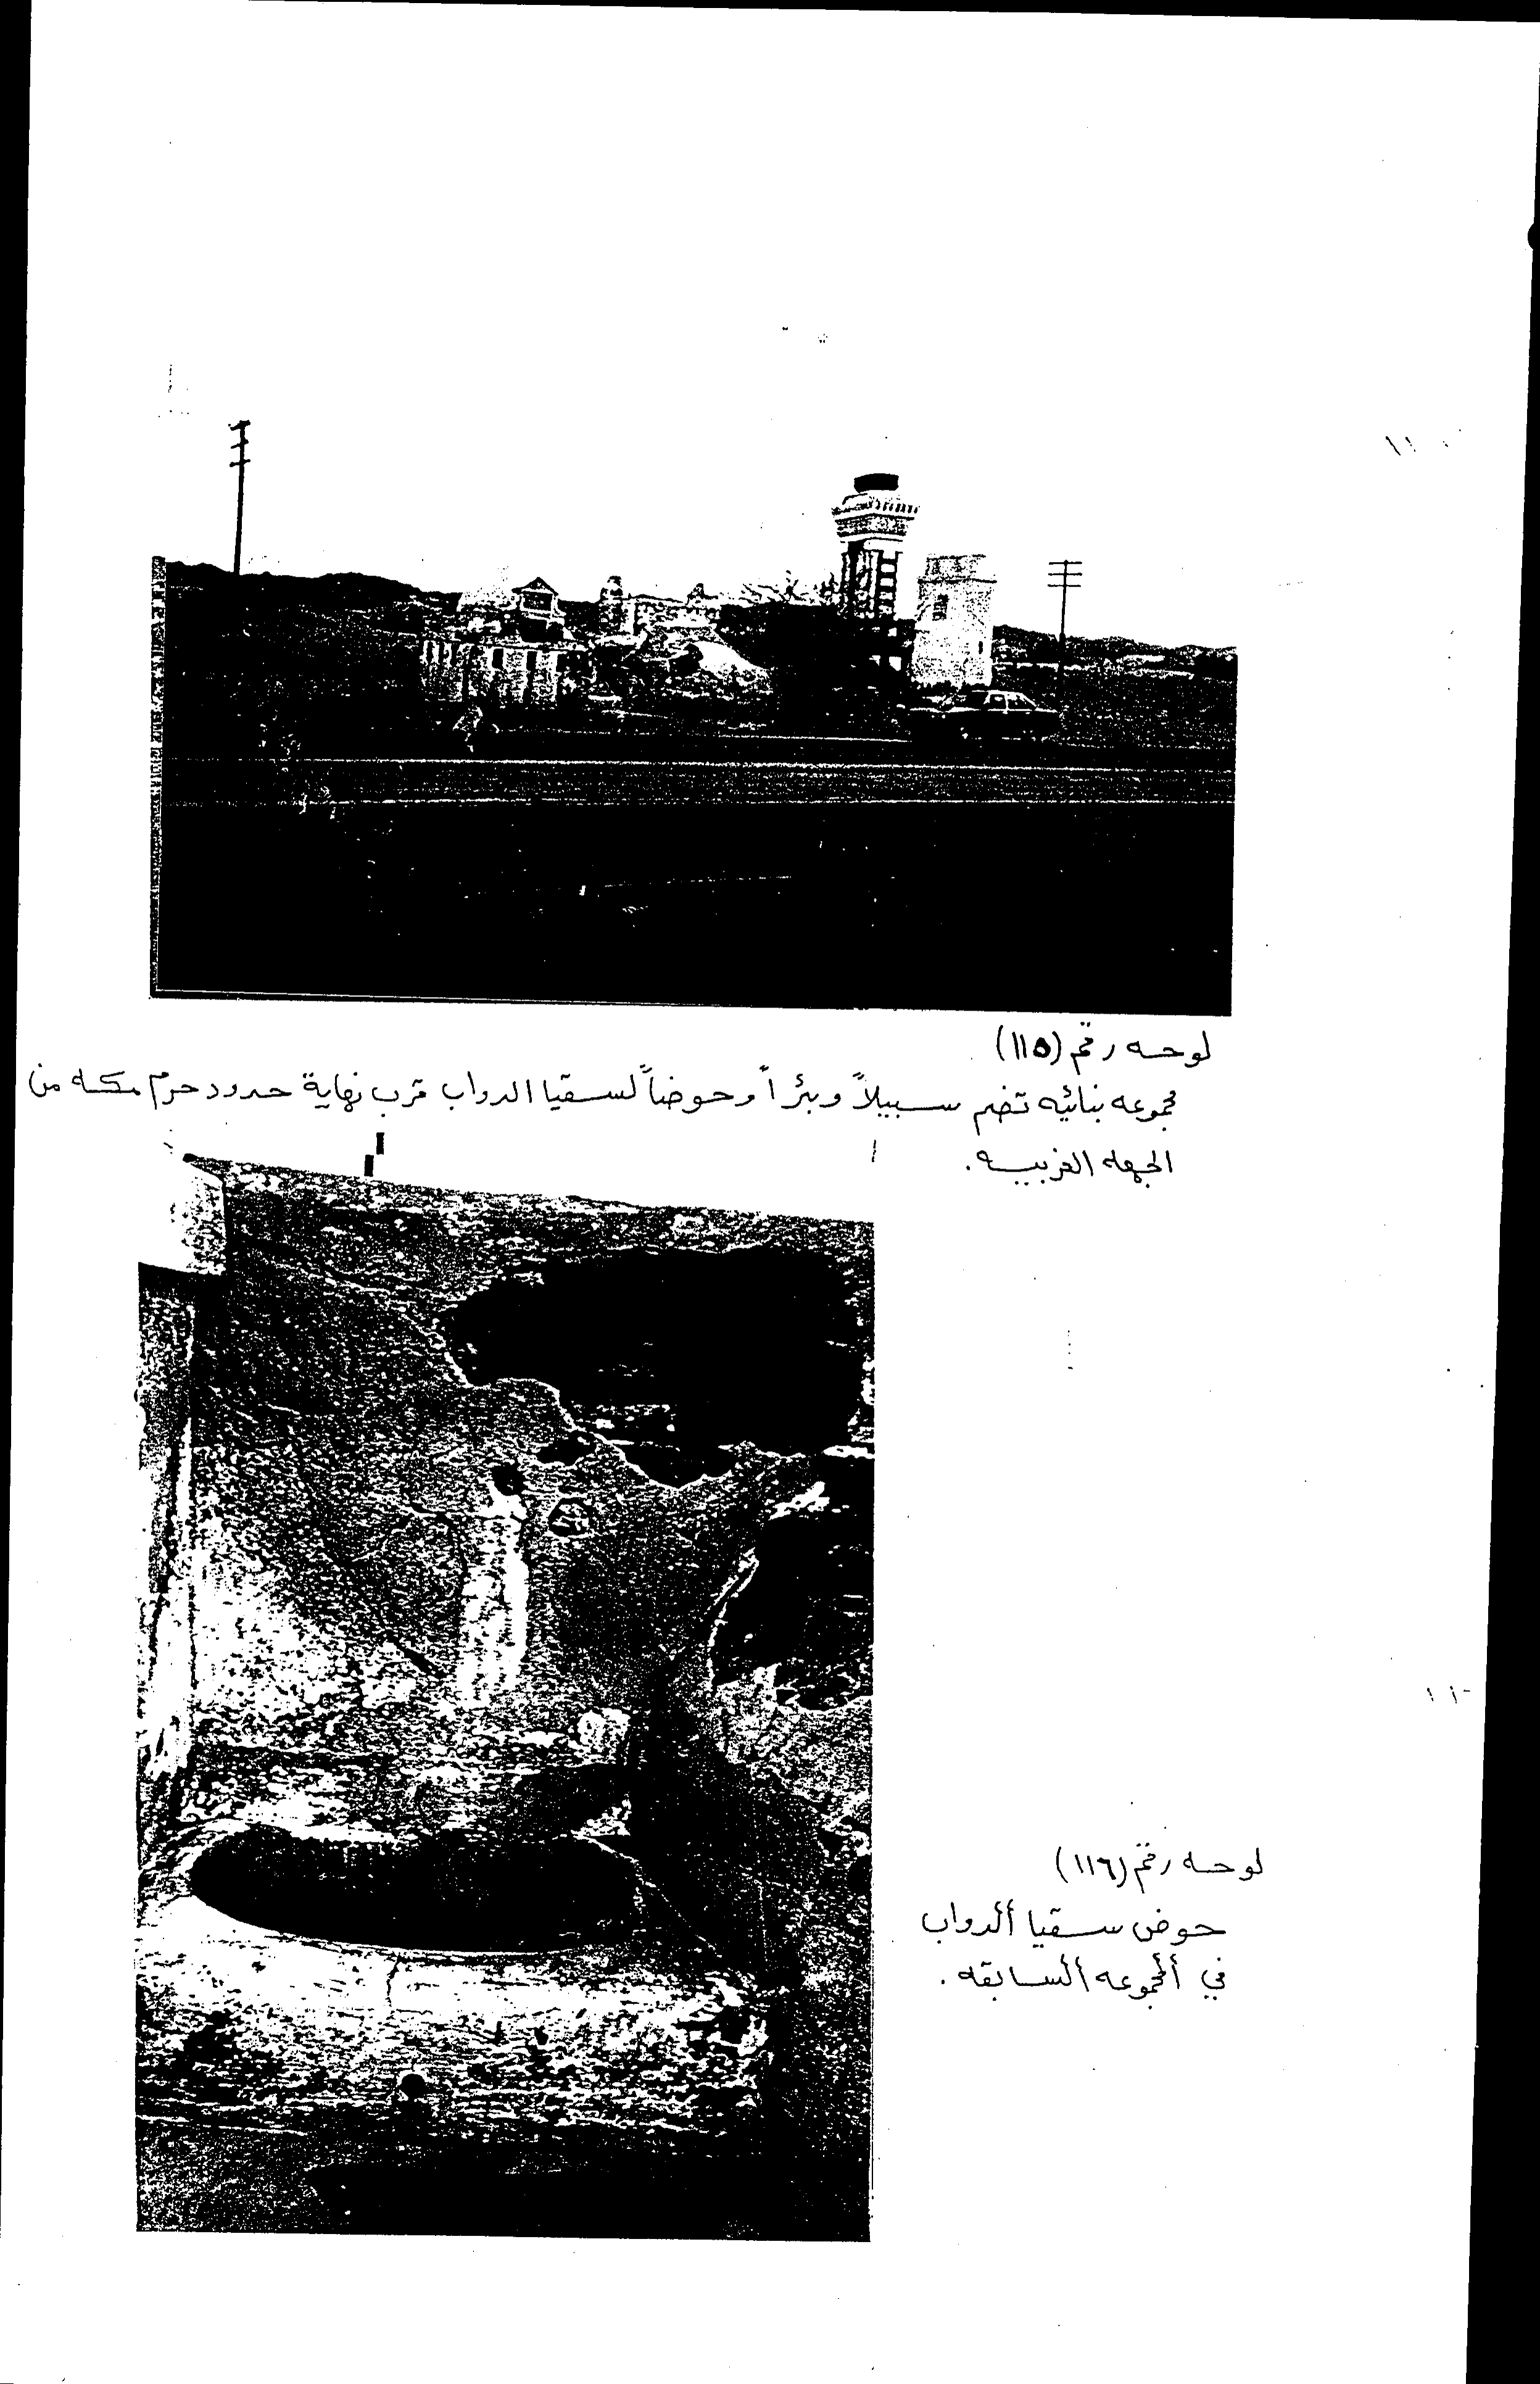 لوحه رقم (١١٥)
مجموعه بنائيه تضم سبيلاً وبئراً وحوضاً لسقيا الدواب قرب نهاية حدود حرم مكه من
الجهه الغربيه.
لوحه رقم (١١٦)
حوض سقيا ألدواب
في ألمجموعه ألسابقه.